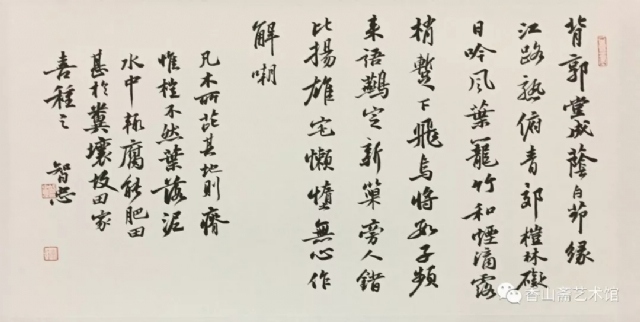 背郭堂成蔭白茆緣
江路熟俯青郊榿林礙
日吟風葉籠竹和煙滴露
梢暫下飛烏將數子頻
來語鷰定新巢旁人錯
比揚雄宅懶惰無心作
解嘲
凡木所芘其地則瘠
惟榿不然葉落泥
水中輒腐能肥田
甚於糞壤故田家
喜種之 智
香山斋艺术馆